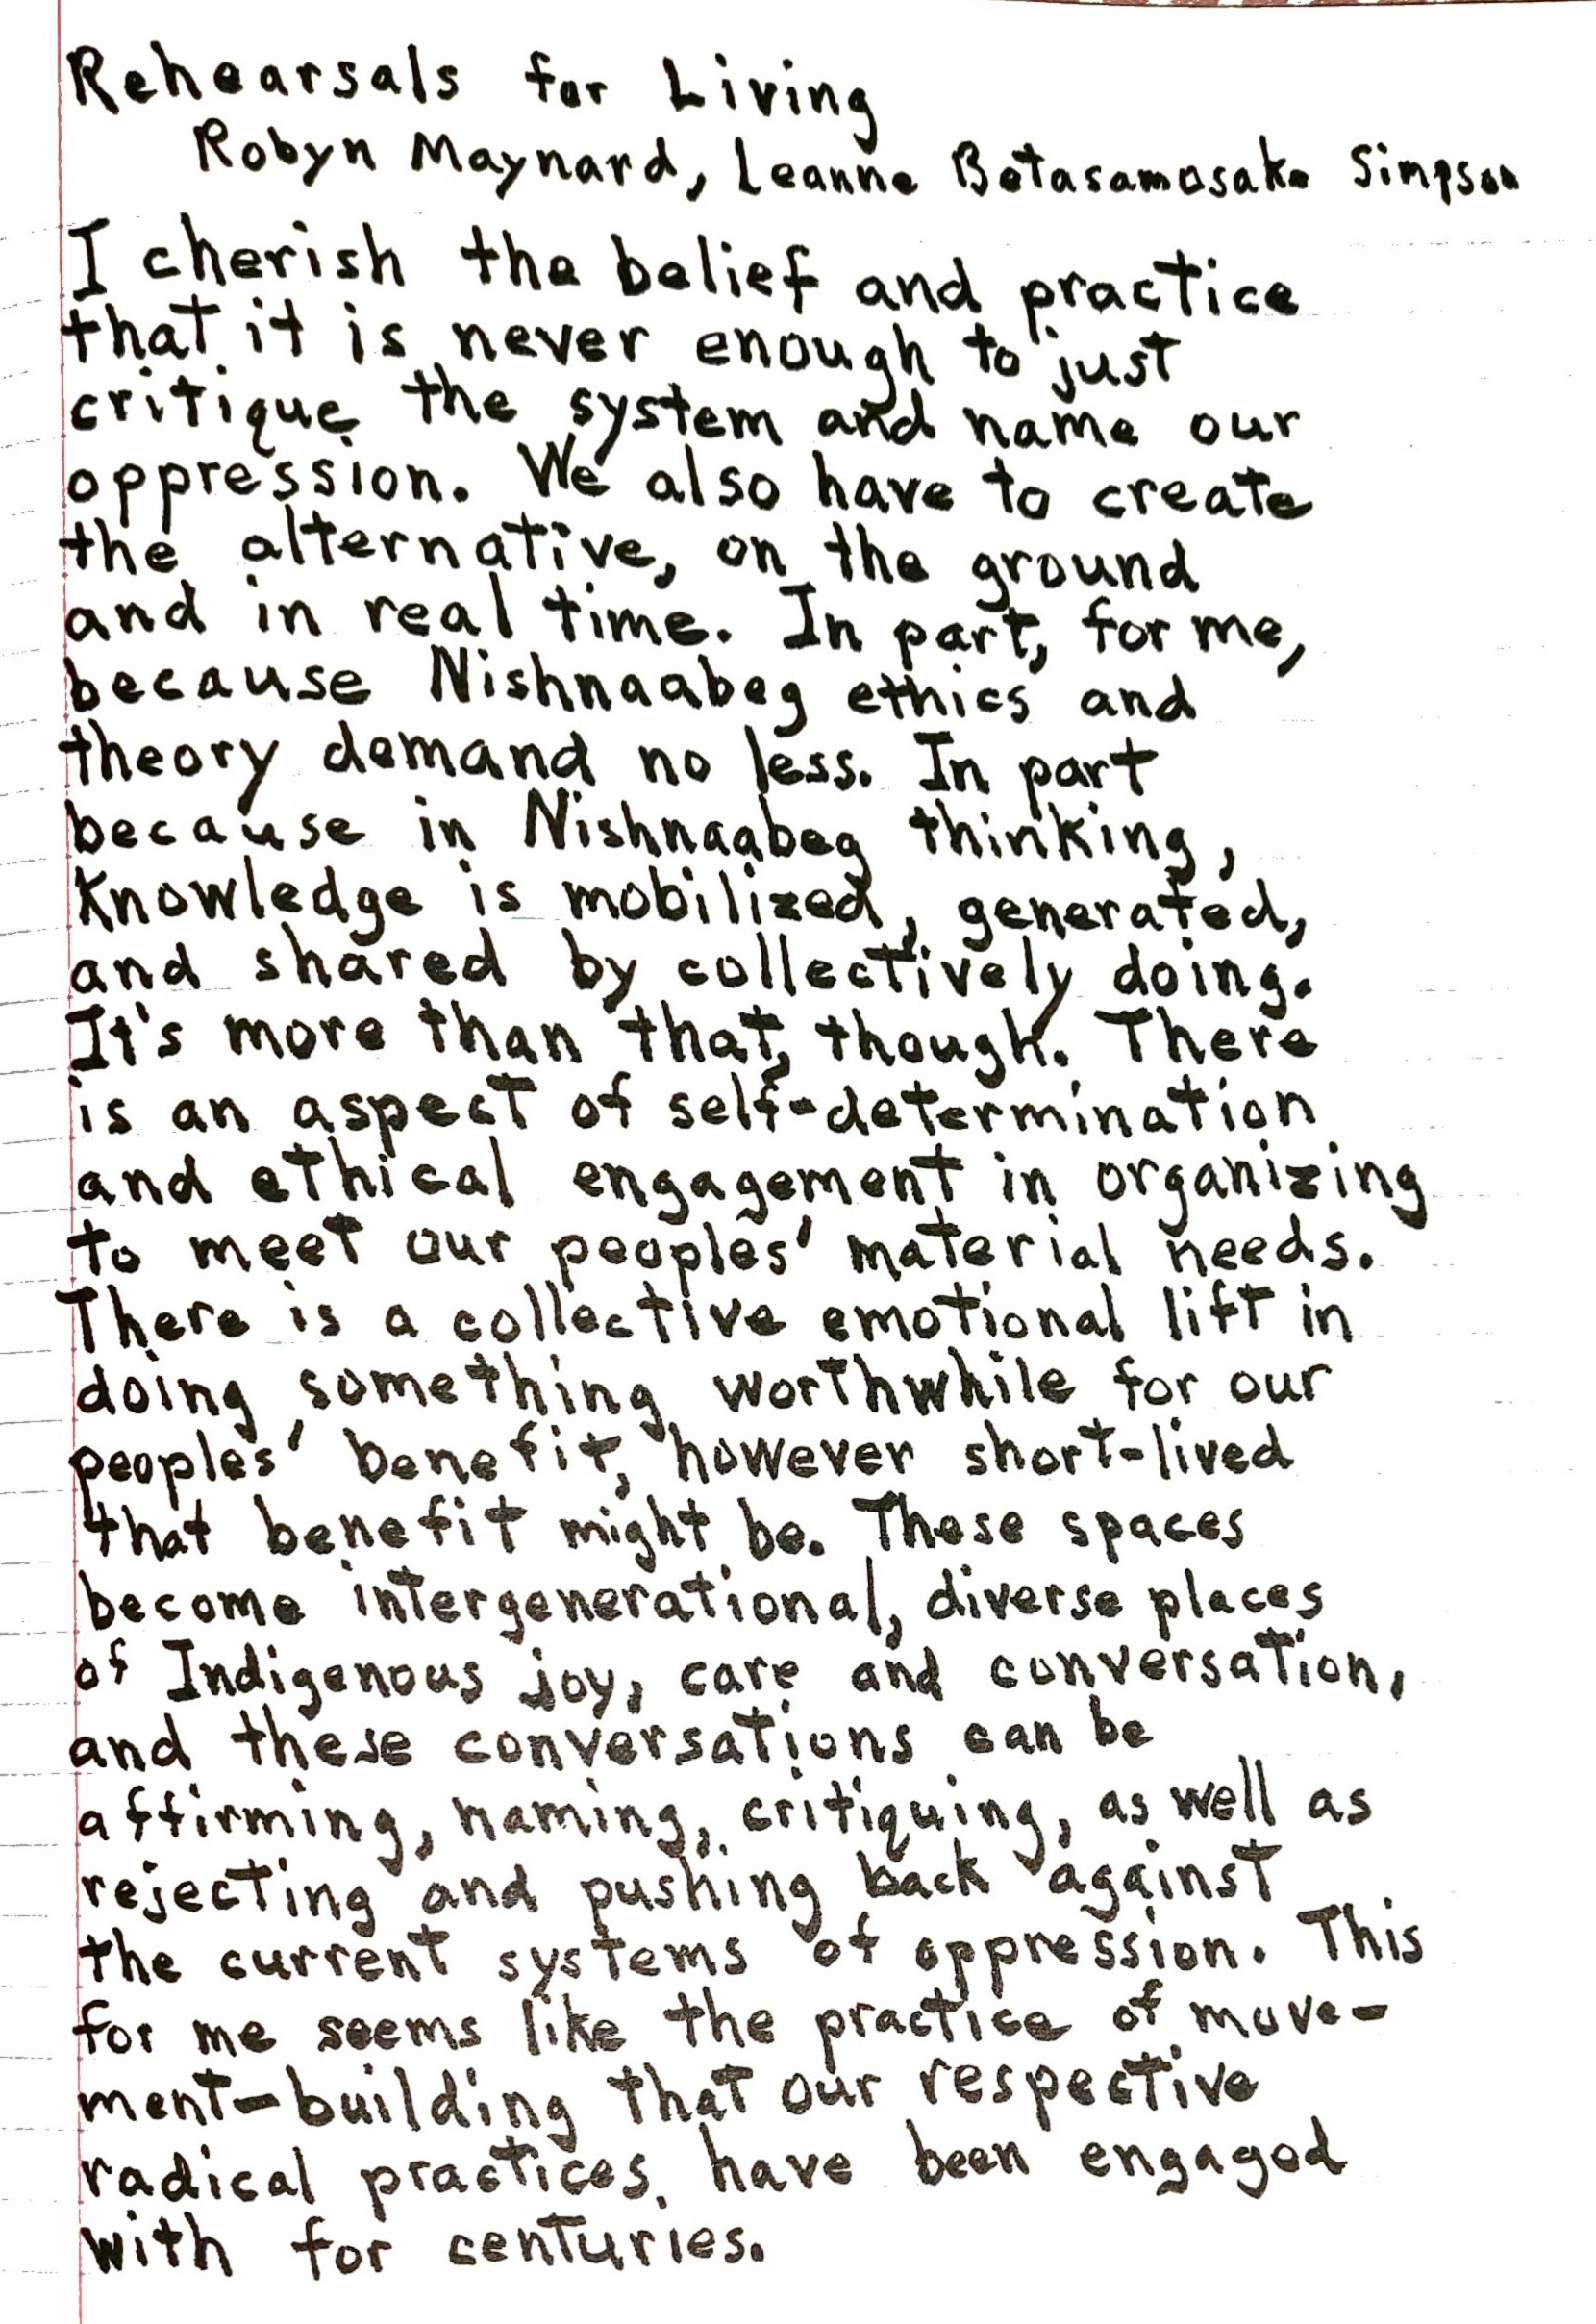 Rehearsals for Living
Robyn Maynard, Leanne Betasamosake Simpson
I cherish the belief and practice
that it is never enough to just
critique the system and name our
oppression. We also have to create
the alternative, on the ground
and in real time. In part, for me,
because Nishnaabeg ethics and
theory demand no less. In part
because in Nishnaabeg thinking,
Knowledge is mobilized, generated,
and shared by collectively doing.
It's more than that, though. There
is an aspect of self-determination
and ethical engagement in organizing
to meet our peoples' material needs.
There is a collective emotional lift in
doing something worthwhile for our
peoples' benefit, however short-lived
that benefit might be. These spaces
become intergenerational, diverse places
of Indigenous joy, care and conversation,
and these conversations can be
affirming, naming, critiquing, as well as
rejecting and pushing back against
the current systems of oppression. This
for me seems like the practice of move-
ment-building that our respective
radical practices have been engaged
with for centuries.